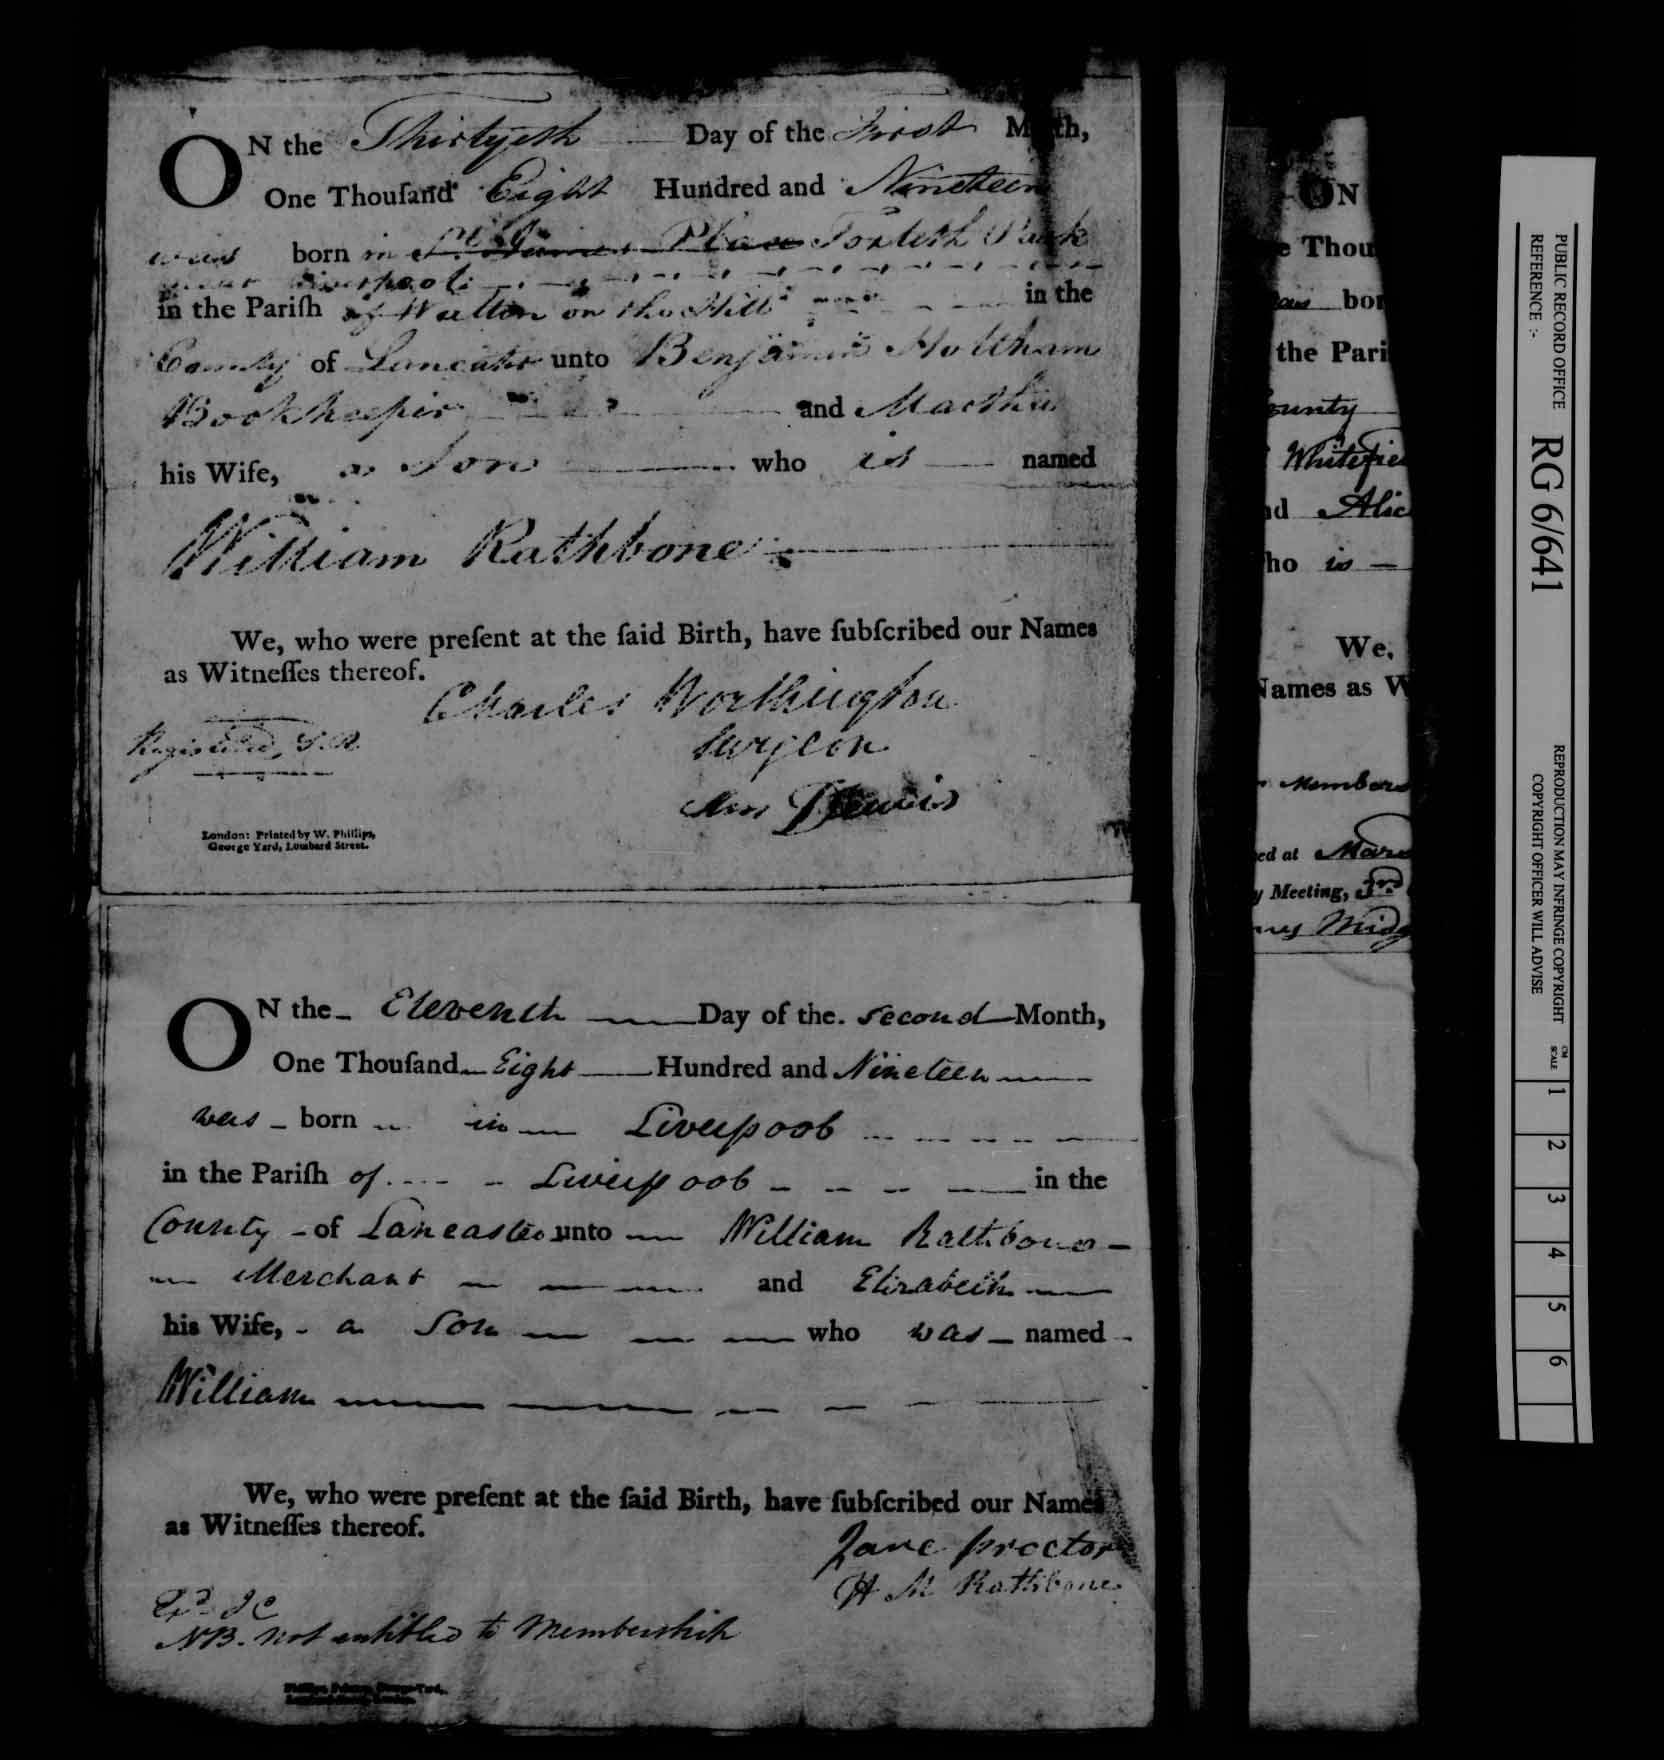 ON the Thirtyeth Day of the First Month,
One Thouſand Eight Hundred and Nineteen
was born in St. James Place Toxteth Park
near Liverpool
in the Pariſh of Walton on the Hill in the
County of Lancaster unto Benjamin Holtham
Bookkeeper and Martha
his Wife, a Son who is named
William Rathbone
We, who were preſent at the ſaid Birth, have ſubſcribed our Names
as Witneſſes thereof.
Charles Worthington
Surgeon
Registered,
Ann
London: Printed by W. Phillips,
George Yard, Lombard Street.
ON the Eleventh Day of the second Month,
One Thouſand Eight Hundred and Nineteen
was born in Liverpool
in the Pariſh of Liverpool in the
County of Lancaster unto William Rathbone
Merchant and Elizabeth
his Wife, a Son who was named
William
We, who were preſent at the ſaid Birth, have ſubſcribed our Names
as Witneſſes thereof.
Jane Proctor
H M Rathbone
NB. not entitled to Membership
ON
e Thou
was bor
the Pari
ounty
Whitefie
nd Alic
ho is
We,
Names as W
Members
ed at Mars
y Meeting,
PUBLIC RECORD OFFICE
REFERENCE :-
RG 6/641
REPRODUCTION MAY INFRINGE COPYRIGHT
COPYRIGHT OFFICER WILL ADVISE
CM
SCALE
1
2
3
4
5
6